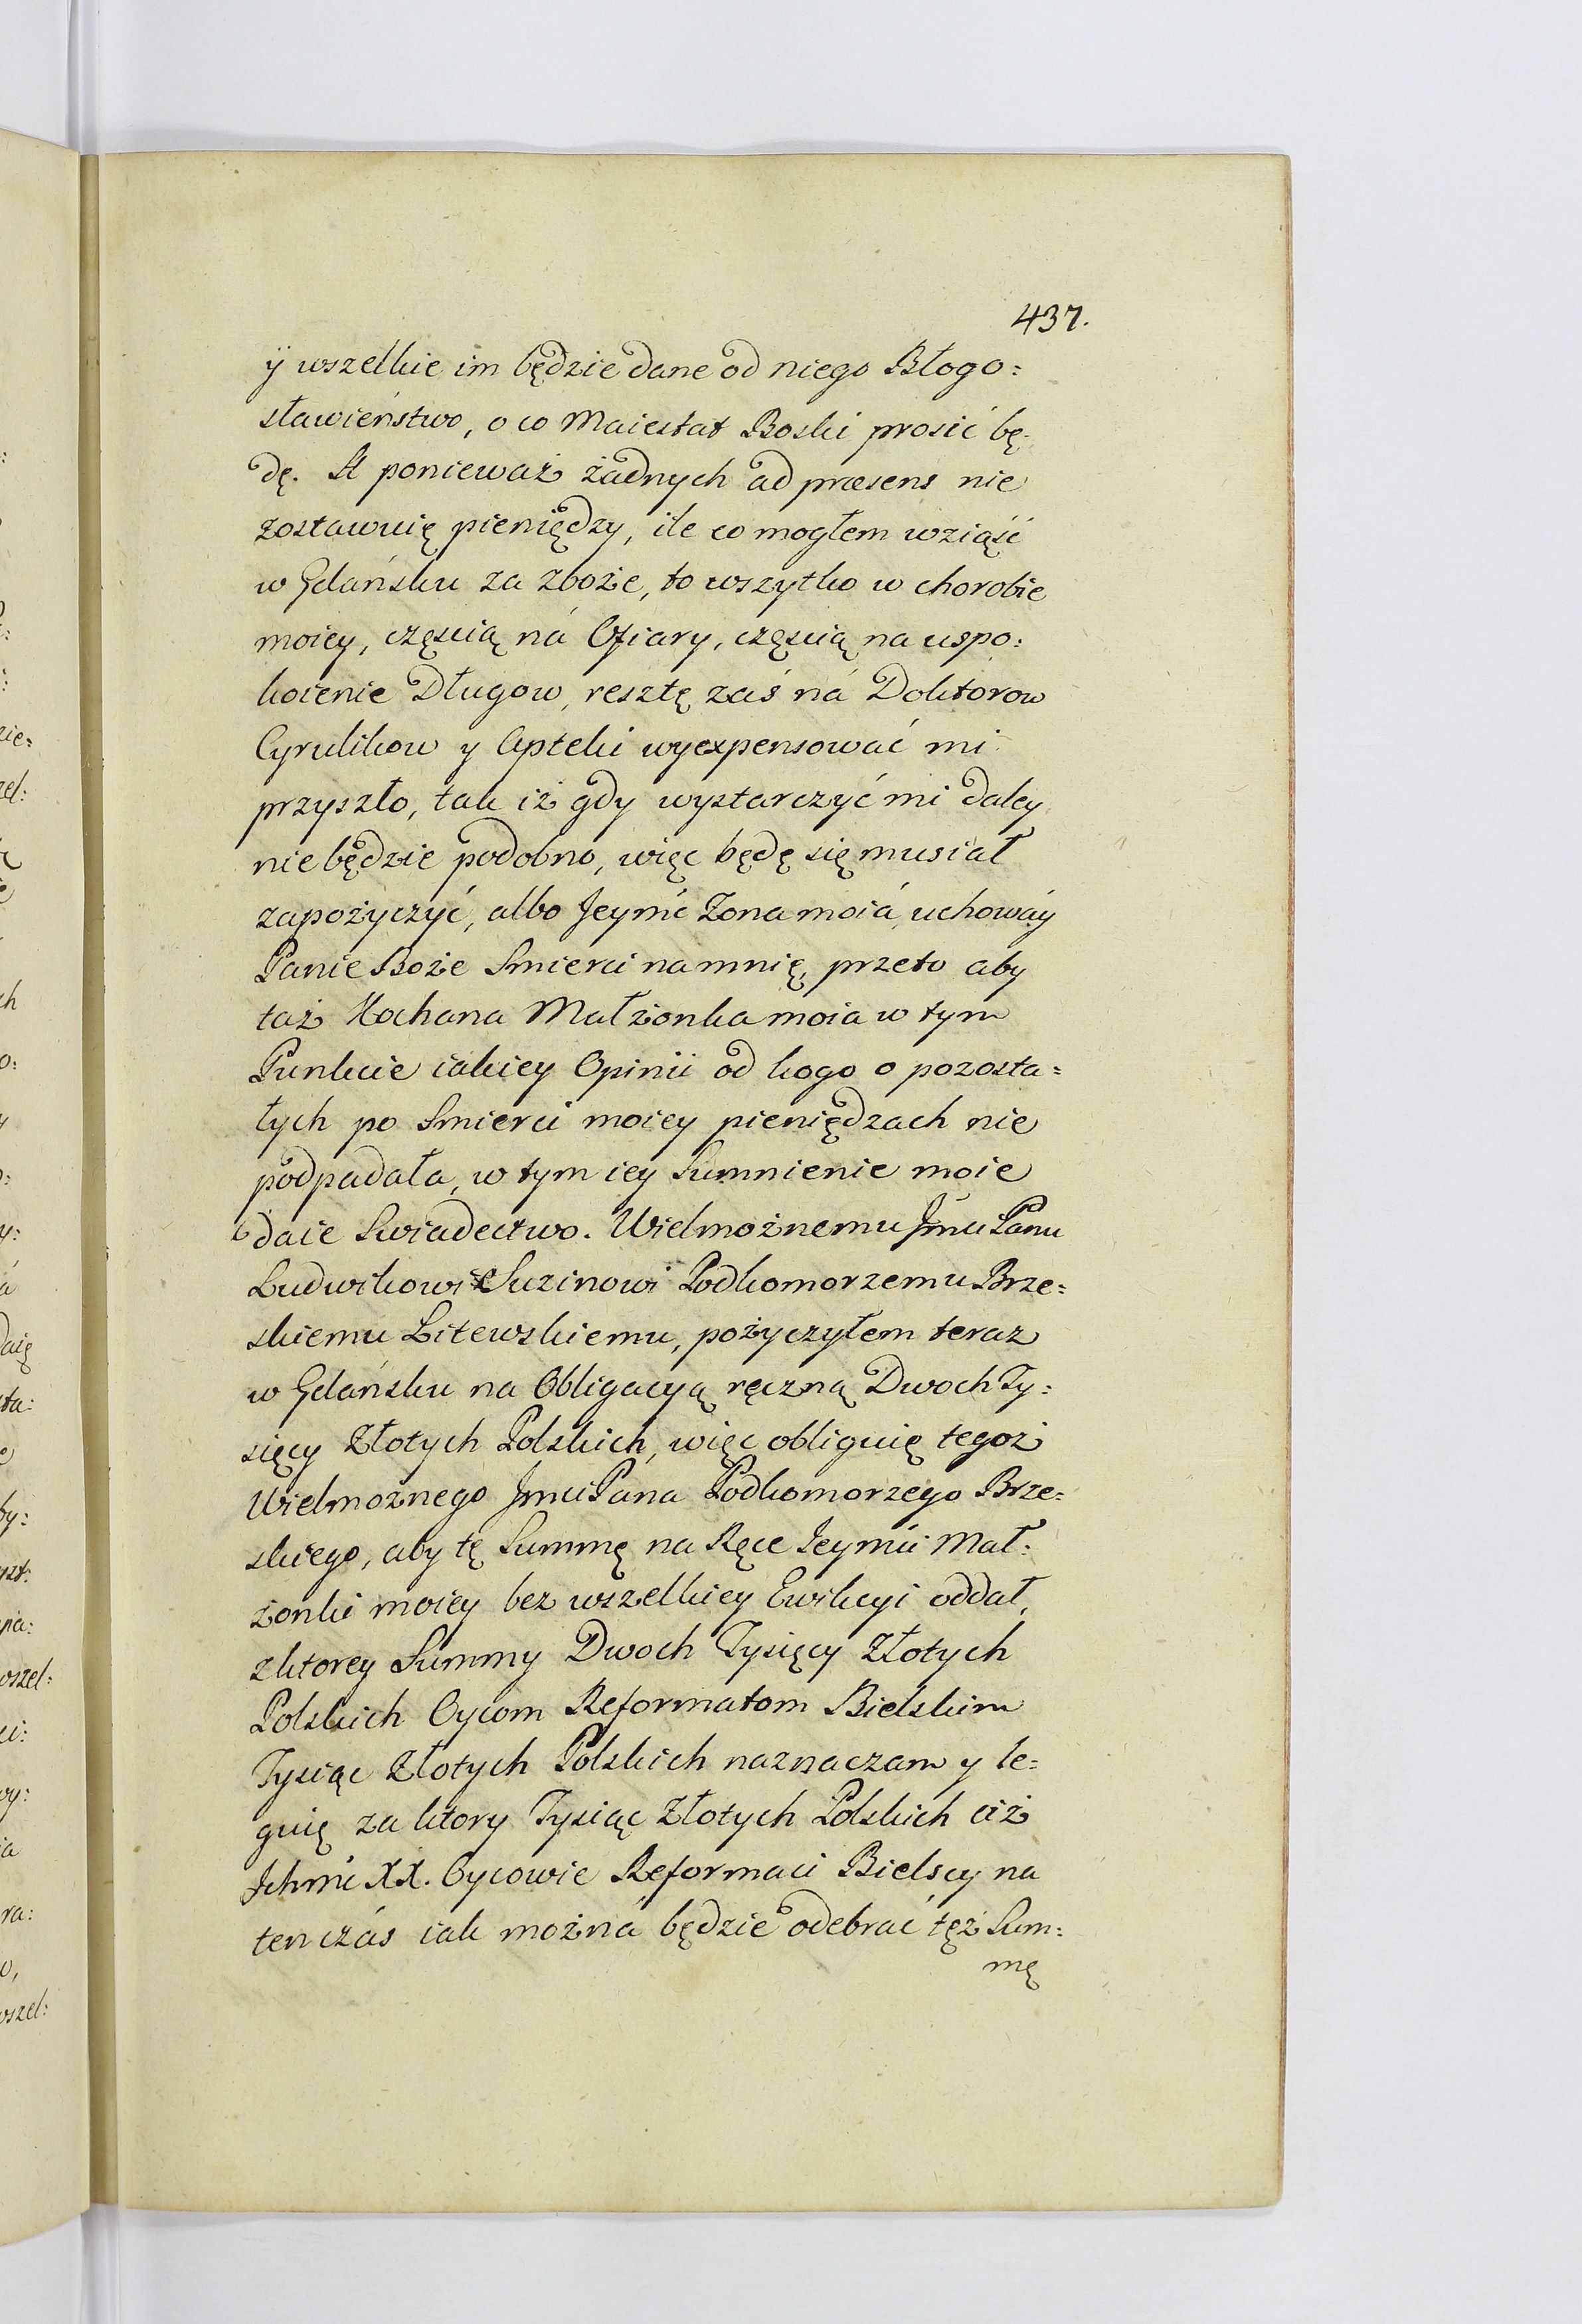 437.
ÿ wszelkie im będzie dane od niego Błogo:
sławieństwo, o co Maiestat Boski prosić bę:
dę. A ponieważ żadnych ad præsens nie
zostawuię pieniędzy, ile co mogłem wziąść
w Gdańsku za zboże, to wszytko w chorobie
moiey, częscią ná Ofiary, częscią na uspo:
koienie Długow, resztę zaś ná Doktorow
Cyrulikow y Apteki wyexpensować mi
przyszło, tak iż gdy wystarczyć mi daley
nie będzie podobno, więc będę się musiał
zapożyczyć, albo Jeymć Zona moiá, uchoway
Panie Boże Smierci na mnię, przeto aby
taż Kochana Małżonka moia w tym
Punkcie iakiey Opinii od kogo o pozosta=
łych po Smierci moiey pieniędzach nie
podpadała, w tym iey Sumnienie moie
daie Swiadectwo. Wielmożnemu Jmci Panu
Ludwikowi Suzinowi Podkomorzemu Brze=
skiemu Litewskiemu, pożyczyłem teraz
w Gdańsku na Obligacyą ręczną Dwoch Ty:
sięcy Złotych Polskich, więc obliguię tegoż
Wielmożnego Jmci Pana Podkomorzego Brze=
skiego, aby tę Summę na Ręce Jeymci Mał:
żonki moiey bez wszelkiey Ewikcyi oddał,
z ktorey Summy Dwoch Tysięcy Złotych
Polskich Oycom Reformatom Bielskim
Tysiąc Złotych Polskich naznaczam y le=
guię za ktory Tysiąc Złotych Polskich ciż
Jchmć XX. Oycowie Reformaci Bielscy na
ten czás iak możná będzie odebrać tęż Sum:
mę
ie:
zel:
daię
sta:
by:
pa:
wszel:
ci:
wy:
ra:
wszel: